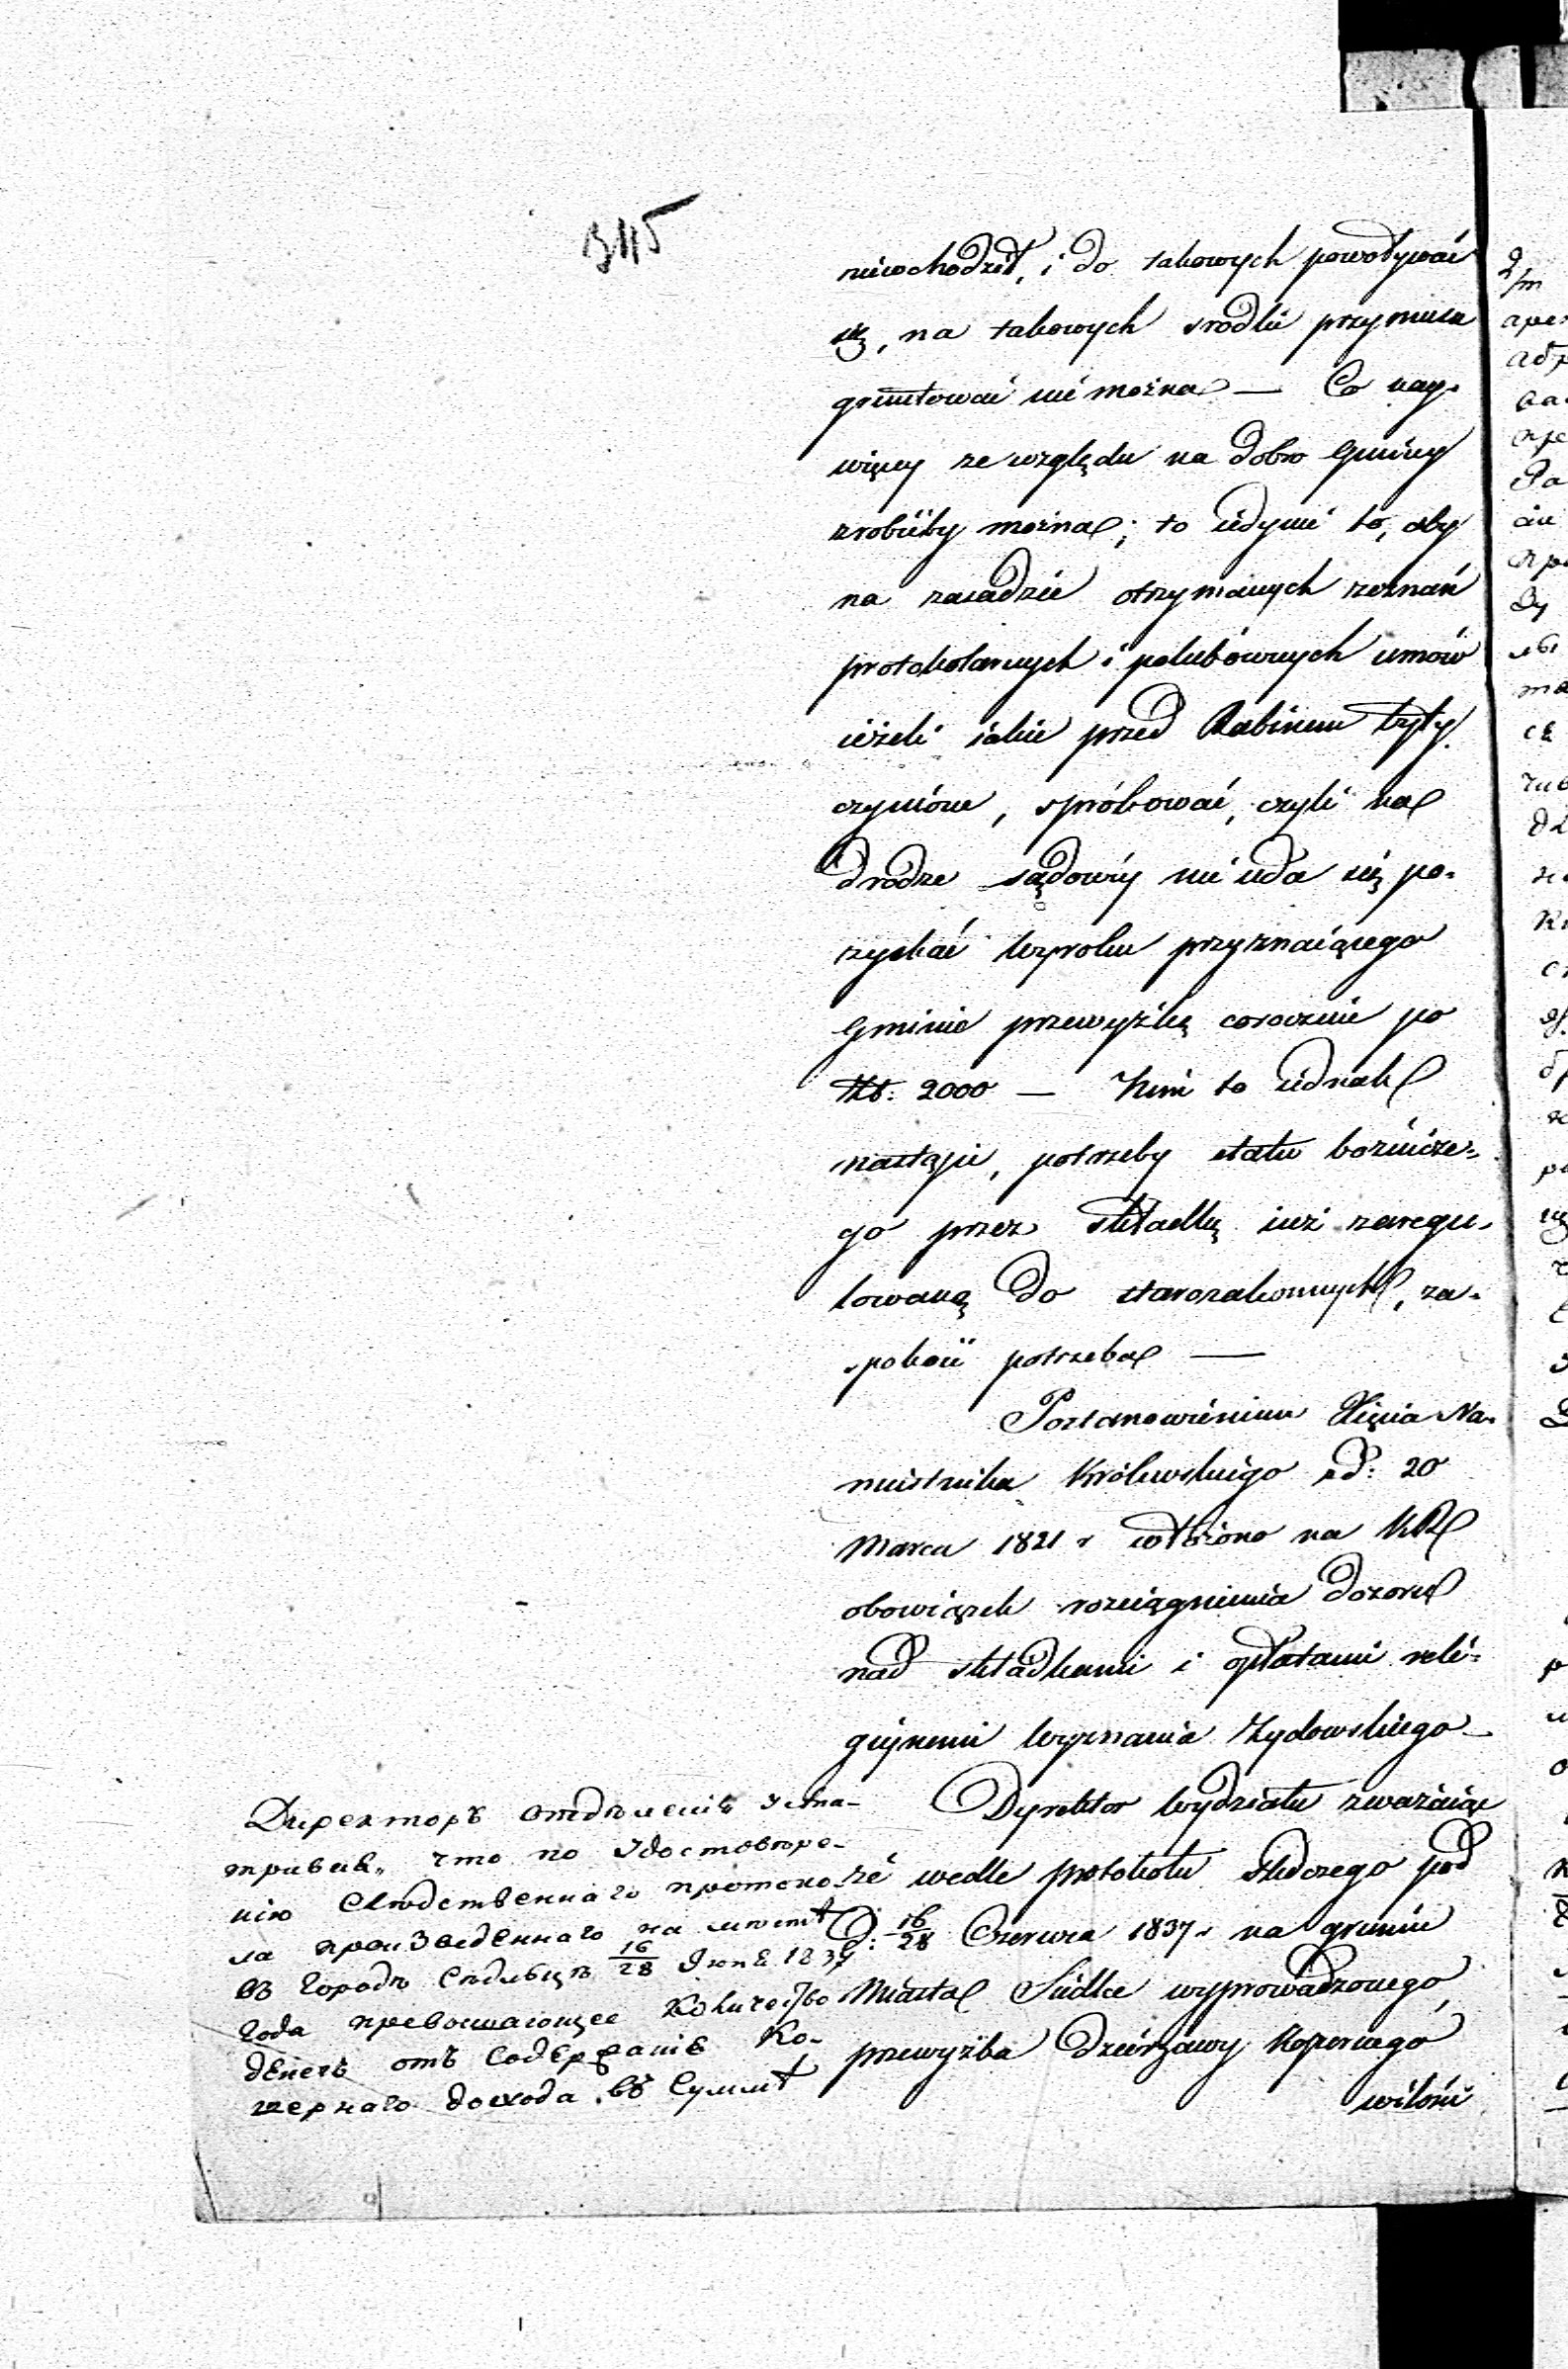 3115
niewchodził, i do takowych powoływać
się, na takowych srodki przymusu
gruntować nie można — Co nay-
więcy ze względu na dobro Gminy
zrobićby można; to iedynie to, aby
na zasadzie otrzymanych zeznań
protokolarnych i polubównych umów
ieżeli iakie przed Rabinem były
czynione, spróbować, czyli na
drodze sądowéy nie uda się po-
zyskać wyroku przyznaiącego
Gminie przewyżkę corocznie po
Złt: 2000 — Nim to iednak
nastąpi, potrzeby etatu bożnicze-
go przez składkę iuż zaregu-
lowaną do starozakonnych, za-
spokoić potrzeba —
Postanowieniem Xięcia Na-
miestnika Królewskiego z d: 20
Marca 1821 r włożono na KR
obowiązek rozciągnienia dozoru
nad składkami i opłatami reli-
giynemi wyznania Żydowskiego —
Dyrektor wydziału zważaiąc
że wedle protokołu śledczego pod
D: 16/28 Czerwca 1837 r na gruncie
Miasta Siedlce wyprowadzonego,
przewyżka Dzierżawy Kosernego
wilości
Директоръ отдѣленія усма-
тривая, что по удостовѣре-
нію Слѣдственнаго протоко-
ла произведеннаго на мѣстѣ
въ Городѣ Сѣдльцѣ 16/28 Іюня 1837
года превышающее Количество
денегъ отъ Содержанія Ко-
шернаго дохода въ Суммѣ